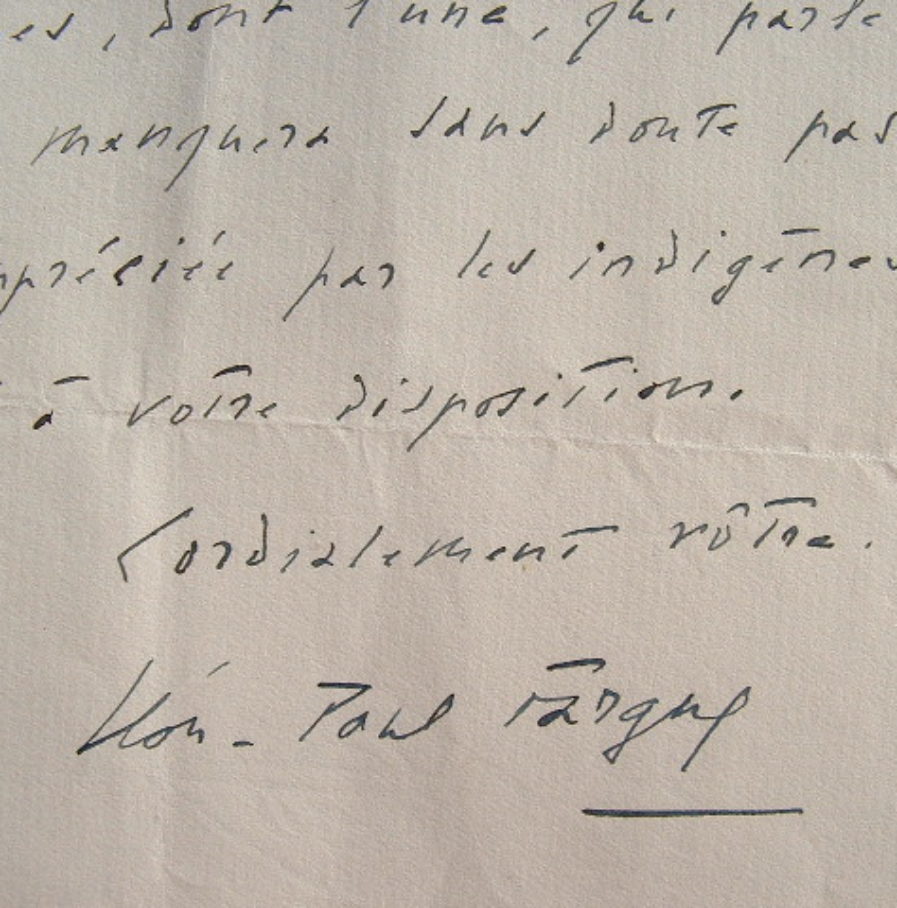 es, dont l'une, qui parle
manquera sans doute pas
ppréciée par les indigènes
à votre disposition.
Cordialement vôtre.
Léon-Paul Fargue